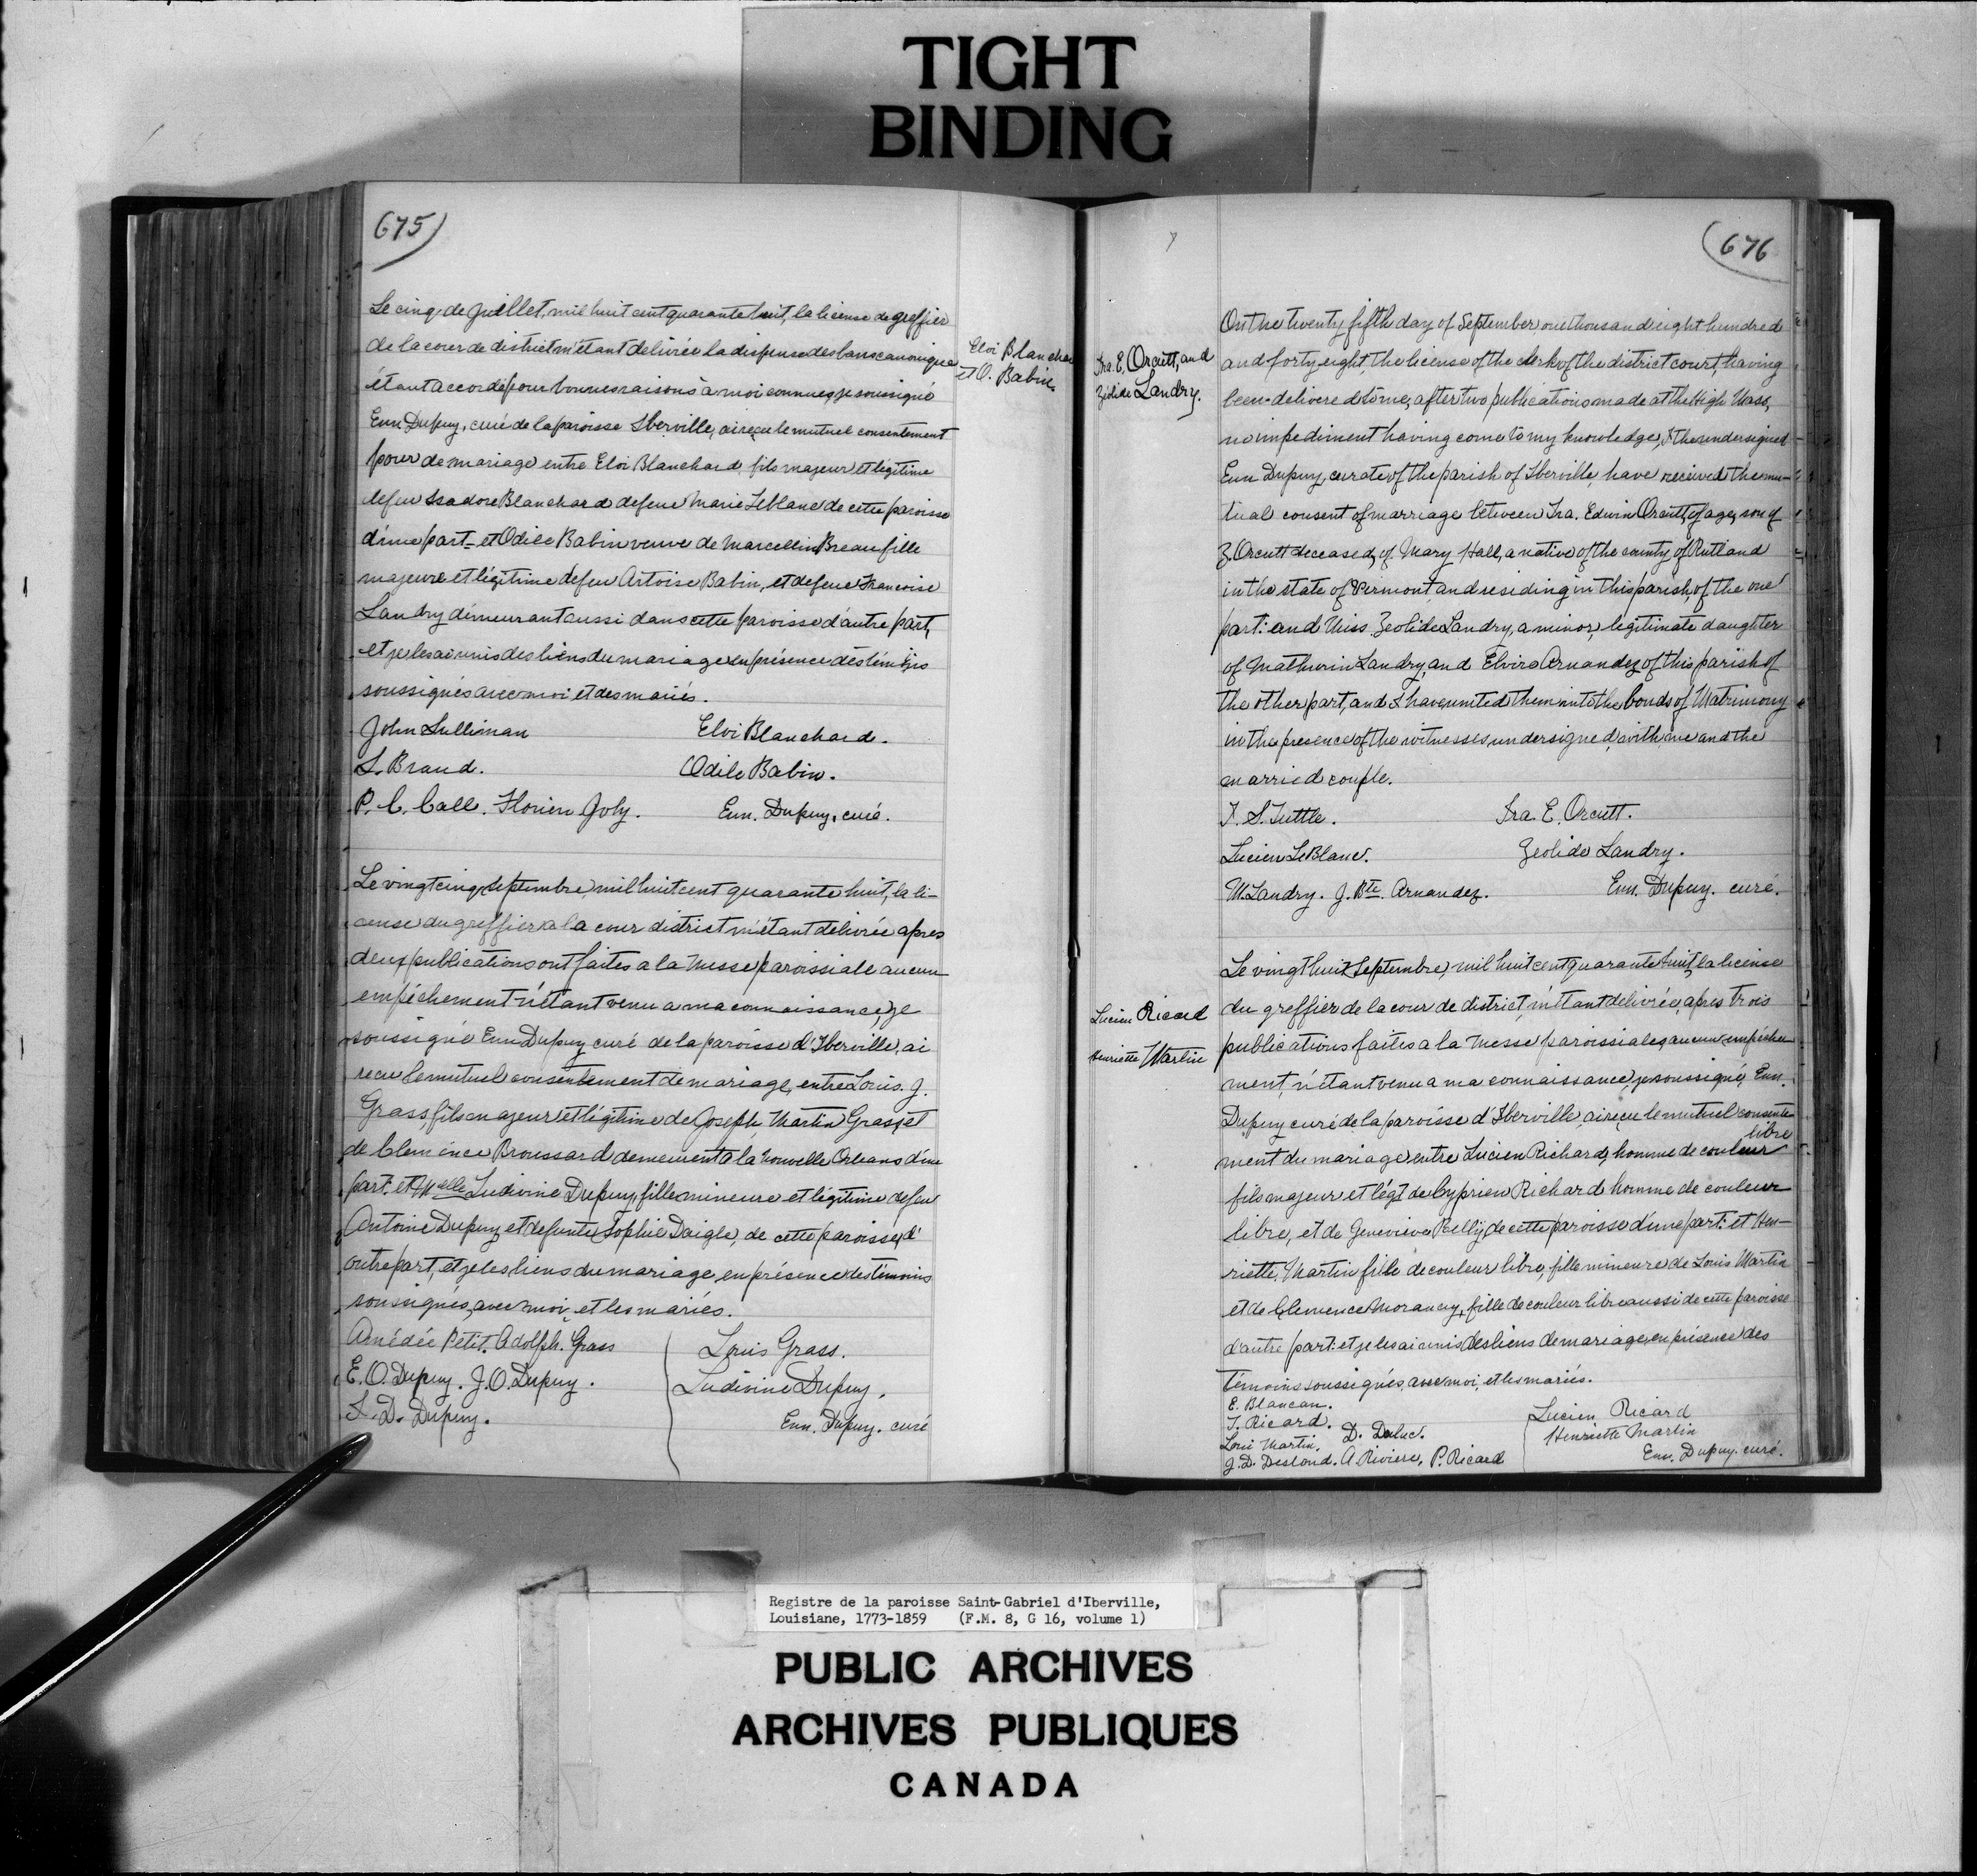 TIGHT
BINDING
675
Le cinq de Juillet, mil huit cent quarante huit, la license de greffier
de la cour de district m'étant delivrée la dispense des bans canonique
étant accordé pour bonnes raisons à moi connues, je soussigné
Emn Dupuy, curé de la paroisse Iberville, ai reçu le mutuel consentement
pour de mariage entre Eloi Blanchard, fils majeur et légitime
de feu Isadore Blanchard de feue Marie Leblanc de cette paroisse
d'une part- et Odile Babin veuve de Marcellin Breau fille
majeure et légitime de feu Artoise Babin, et de feue Francoise
Landry démeurant aussi dans cette paroisse d'autre part,
et je les ai unis des liens du mariage en présence des témoins
soussignés avec moi et des mariés.
John Sullivan Eloi Blanchard.
S. Braud. Odile Babin.
P. C. Call. Florien Joly. Emn. Dupuy, curé.
Eloi Blanchar
et O. Babin
Le vingt cinq, Septembre, mil huit cent quarante huit, la li-
cense du greffier a la cour district m'étant délivrée apres
deux publications ont faites a la Messe paroissiale aucun
empéchement n'étant venu a ma connaissance, je
soussigné Emn Dupuy curé de la paroisse d'Iberville, ai
recu le mutuel consentement de mariage, entre Louis. J.
Grass, fils majeur et légitime de Joseph Martin Grass, et
de Clemence Broussard demeurent à la Nouvelle Orleans d'une
part. et Melle Ludivine Dupuy, fille mineure et légitime de feu
Antoine Dupuy et defunte Sophie Daigle, de cette paroisse, d'
outre part, et je les liens du mariage, en présence des témoins
soussignés, avec moi, et les mariés.
Amédée Petit. Adolph. Grass Louis Grass.
E. O. Dupuy. J. O. Dupuy. Ludivine Dupuy.
S. D. Dupuy. Emn. Dupuy. curé
676
Ira. E. Orcutt, and
Zéolide Landry.
On the twenty fifth day of September one thousand eight hundred
and forty eight, the license of the clerk of the district court, having
been delivered to me, after two publications made at the High Mass,
no impediment having come to my knowledge, I the undersigned
Emn Dupuy, curate of the parish of Iberville, have received the mu-
tual consent of marriage between Ira. Edwin Orcutt, of age, son of
Z. Orcutt deceased, of Mary Hall, a native of the county of Rutland
in the state of Vermont, and residing in this parish, of the one
part: and Miss. Zeolide Landry, a minor, legitimate daughter
of Mathurin Landry, and Elvire Arnandez of this parish of
the other part, and I have united them into the bonds of Matrimony
in the presence of the witnesses undersigned, with me and the
married couple.
T. S. Tuttle. Ira. E. Orcutt.
Lucien LeBlanc. Zeolide Landry.
M. Landry. J. Bte. Arnandez. Emn. Dupuy. curé.
Lucien Ricard
Henriette Martin
Le vingt huit Septembre, mil huit cent quarante huit, la license
du greffier de la cour de district, m'étant délivrée, apres trois
publications faites a la Messe paroissiales, aucun empéche
ment, n'étant venu a ma connaissance, je soussigné, Emn.
Dupuy curé de la paroisse d'Iberville, ai reçu le mutuel consente
ment du mariage entre Lucien Richard, homme de couleur libre
fils majeur et légt de Cyprien Richard homme de couleur
libre, et de Genevieve Belly, de cette paroisse d'une part: et Hen-
riette Martin fille de couleur libre, fille mineure de Louis Martin
et de Clemence Morancy, fille de couleur libre aussi de cette paroisse
d'autre part: et je les ai unis des liens de mariage, en présence des
témoins soussignés, avec moi, et les mariés.
E. Blancan.
T. Ricard. D. Duluc. Lucien Ricard
Loui Martin. Henriette Martin
J. D. Deslond. A Riviere, P. Ricard Emn. Dupuy. curé.
Registre de la paroisse Saint-Gabriel d'Iberville,
Louisiane, 1773-1859 (F.M. 8, G 16, volume 1)
PUBLIC ARCHIVES
ARCHIVES PUBLIQUES
CANADA